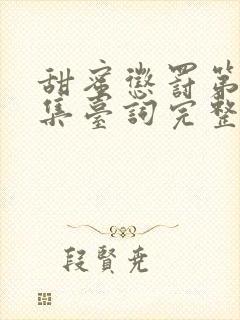 甜蜜懲罰第
集臺詞完整
段賢堯